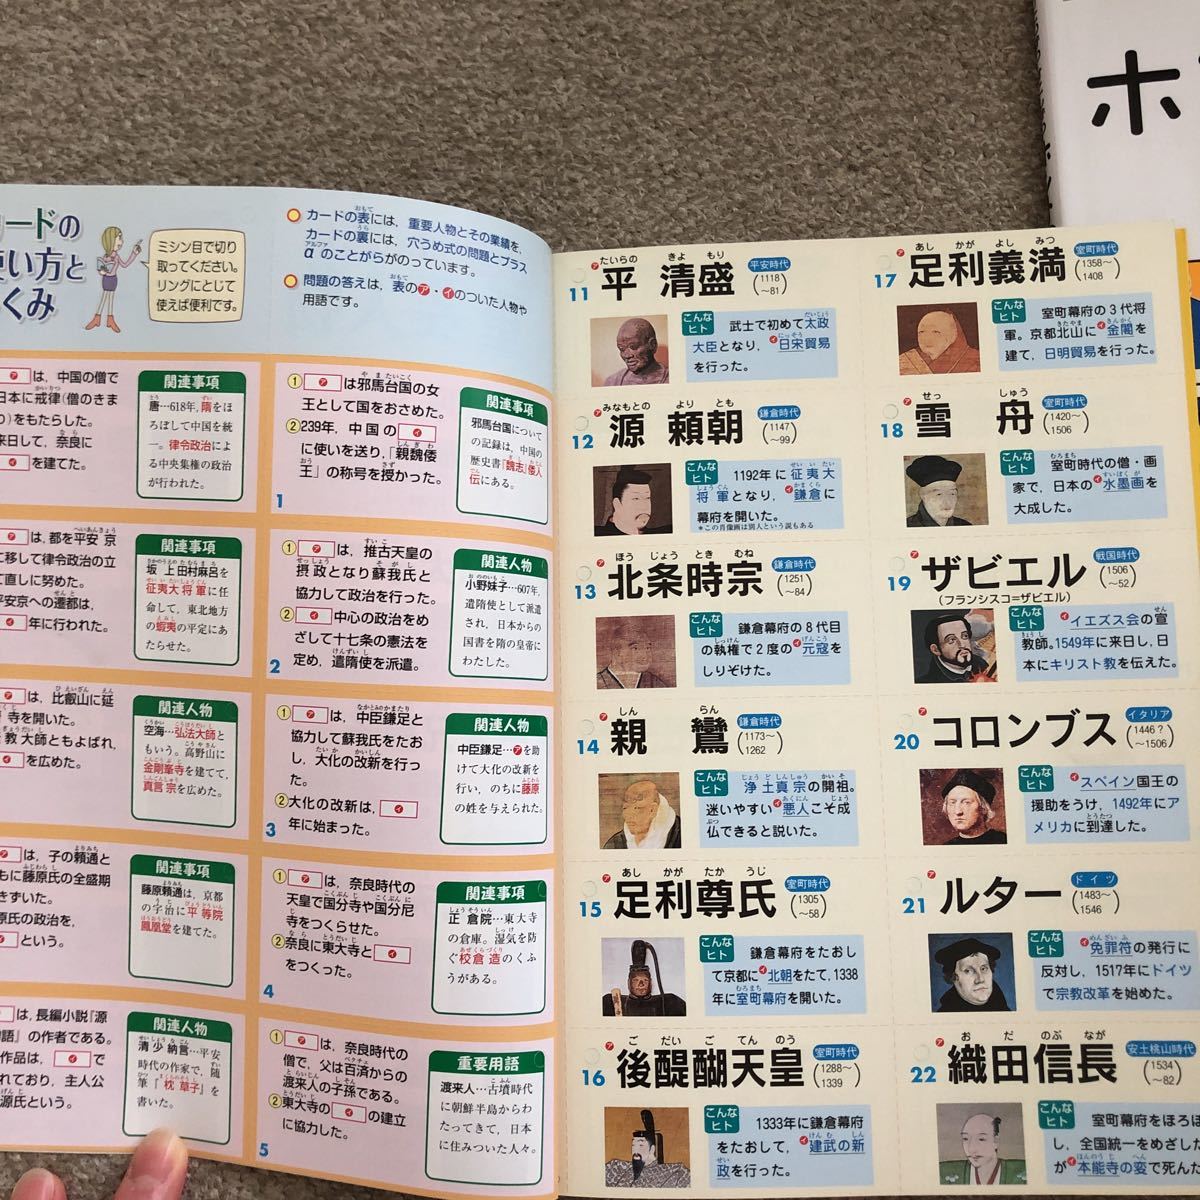 ホ
カードの
使い方と
しくみ
ミシン目で切り
取ってください。
リングにとじて
使えば便利です。
カードの表には、重要人物とその業績を、
カードの裏には、穴うめ式の問題とプラス
αのことがらがのっています。
問題の答えは、表のア・イのついた人物や
用語です。
アは、中国の僧で
日本に戒律(僧のきま
り)をもたらした。
来日して、奈良に
イを建てた。
関連事項
唐…618年、隋をほ
ろぼして中国を統
一。律令政治によ
る中央集権の政治
が行われた。
①アは邪馬台国の女
王として国をおさめた。
②239年、中国のイ
に使いを送り、「親魏倭
王」の称号を授かった。
1
関連事項
邪馬台国について
の記録は、中国の
歴史書『魏志』倭人
伝にある。
アは、都を平安京
に移して律令政治の立
て直しに努めた。
平安京への遷都は、
イ年に行われた。
関連事項
坂上田村麻呂を
征夷大将軍に任
命して、東北地方
の蝦夷の平定にあ
たらせた。
①アは、推古天皇の
摂政となり蘇我氏と
協力して政治を行った。
②イ中心の政治をめ
ざして十七条の憲法を
定め、遣隋使を派遣。
2
関連人物
小野妹子…607年、
遣隋使として派遣
され、日本からの
国書を隋の皇帝に
わたした。
アは、比叡山に延
暦寺を開いた。
教大師ともよばれ、
イを広めた。
関連人物
空海…弘法大師と
もいう。高野山に
金剛峯寺を建てて、
真言宗を広めた。
①アは、中臣鎌足と
協力して蘇我氏をたお
し、大化の改新を行っ
た。
②大化の改新は、イ
年に始まった。
3
関連人物
中臣鎌足…アを助
けて大化の改新を
行い、のちに藤原
の姓を与えられた。
アは、子の頼通と
もに藤原氏の全盛期
きずいた。
原氏の政治を、
という。
関連事項
藤原頼通は、京都
の宇治に平等院
鳳凰堂を建てた。
①アは、奈良時代の
天皇で国分寺や国分尼
寺をつくらせた。
②奈良に東大寺とイ
をつくった。
4
関連事項
正倉院…東大寺
の倉庫。湿気を防
ぐ校倉造のくふ
うがある。
は、長編小説『源
物語』の作者である。
作品は、イで
れており、主人公
源氏という。
関連人物
清少納言…平安
時代の作家で、随
筆『枕草子』を
書いた。
①アは、奈良時代の
僧で、父は百済からの
渡来人の子孫である。
②東大寺のイの建立
に協力した。
5
重要用語
渡来人…古墳時代
に朝鮮半島からわ
たってきて、日本
に住みついた人々。
11 ア 平 清盛 たいらの きよ もり 平安時代 (1118~81)
こんなヒト 武士で初めて太政
大臣となり、イ日宋貿易
を行った。
12 ア 源 頼朝 みなもとの より とも 鎌倉時代 (1147~99)
こんなヒト 1192年に征夷大
将軍となり、イ鎌倉に
幕府を開いた。
*この肖像画は別人という説もある
13 ア 北条時宗 ほう じょう とき むね 鎌倉時代 (1251~84)
こんなヒト 鎌倉幕府の8代目
の執権で2度のイ元寇を
しりぞけた。
14 ア 親鸞 しん らん 鎌倉時代 (1173~1262)
こんなヒト 浄土真宗の開祖。
迷いやすいイ悪人こそ成
仏できると説いた。
15 ア 足利尊氏 あし かが たか うじ 室町時代 (1305~58)
こんなヒト 鎌倉幕府をたおし
て京都にイ北朝をたて、1338
年に室町幕府を開いた。
16 ア 後醍醐天皇 ご だい ご てん のう 室町時代 (1288~1339)
こんなヒト 1333年に鎌倉幕府
をたおして、イ建武の新
政を行った。
17 ア 足利義満 あし かが よし みつ 室町時代 (1358~1408)
こんなヒト 室町幕府の3代将
軍。京都北山にイ金閣を
建て、日明貿易を行った。
18 ア 雪舟 せっ しゅう 室町時代 (1420~1506)
こんなヒト 室町時代の僧・画
家で、日本のイ水墨画を
大成した。
19 ア ザビエル (フランシスコ=ザビエル) 戦国時代 (1506~52)
こんなヒト イイエズス会の宣
教師。1549年に来日し、日
本にキリスト教を伝えた。
20 ア コロンブス イタリア (1446?~1506)
こんなヒト イスペイン国王の
援助をうけ、1492年にア
メリカに到達した。
21 ア ルター ドイツ (1483~1546)
こんなヒト イ免罪符の発行に
反対し、1517年にドイツ
で宗教改革を始めた。
22 ア 織田信長 お だ のぶ なが 安土桃山時代 (1534~82)
こんなヒト 室町幕府をほろぼ
し、全国統一をめざした
がイ本能寺の変で死んだ